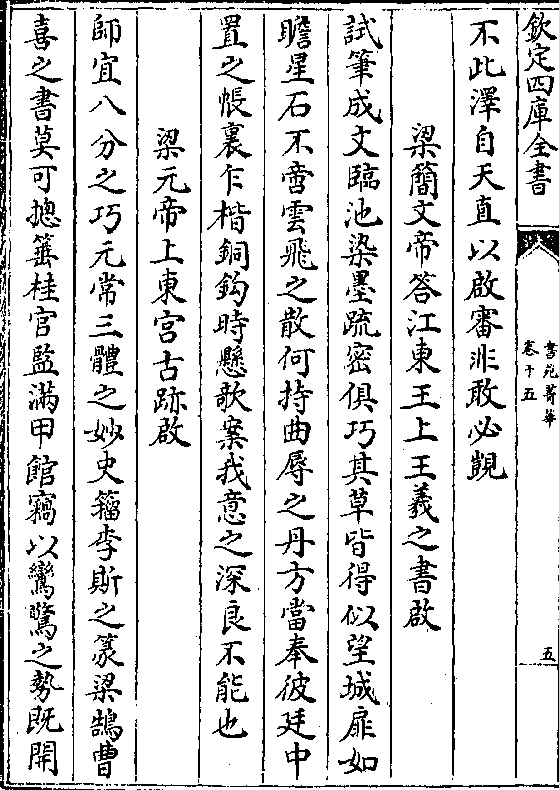 欽定四庫全書
書苑菁華
卷十五
五
不此澤自天直以啟審非敢必覬
梁簡文帝答江東王上王羲之書啟
試筆成文臨池染墨疏密俱巧其草皆得似望城扉如
瞻星石不啻雲飛之散何持曲辱之丹方當奉彼廷中
置之帳裏乍楷銅鈎時懸歌案我意之深良不能也
梁元帝上東宮古跡啟
師宜八分之巧元常三體之妙史籀李斯之篆梁鵠曹
喜之書莫可摠簉桂官監滿甲館竊以鸞驚之勢既開